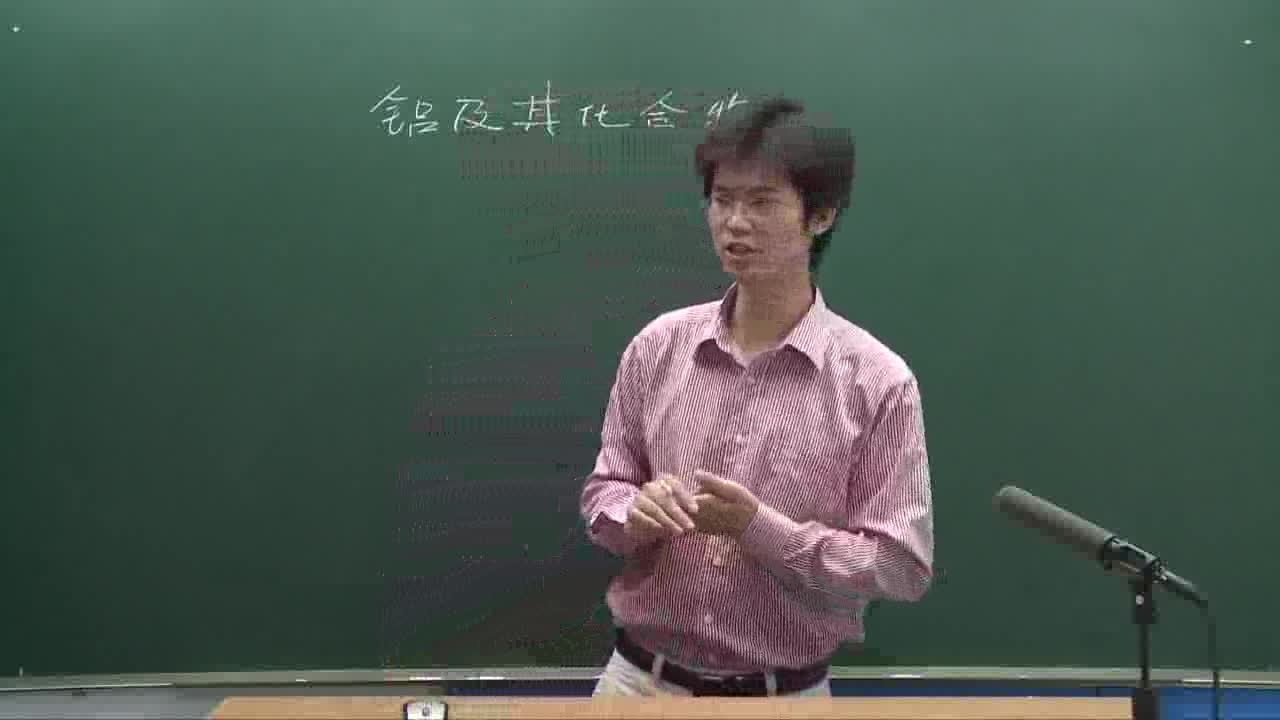 铝及其化合